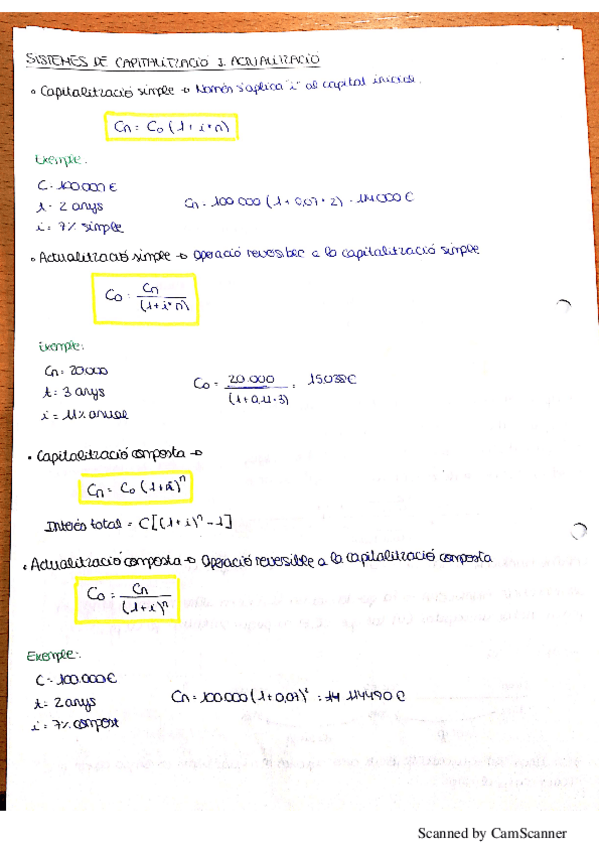 SISTEMES DE CAPITALITZACIÓ I ACTUALITZACIÓ
• Capitalització simple → Només s'aplica "i" al capital inicial.
Cn = C0 (1 + i·n)
Exemple:
C = 100.000€
t = 2 anys
i = 7% simple
Cn = 100 000 (1 + 0,07 · 2) = 114000 €
• Actualització simple → Operació reversible a la capitalització simple
C0 = Cn / (1 + i·n)
Exemple:
Cn = 20000
t = 3 anys
i = 11% anual
C0 = 20.000 / (1 + 0,11 · 3) = 15.038€
• Capitalització composta →
Cn = C0 (1+i)^n
Interés total = C[(1+i)^n - 1]
• Actualització composta → Operació reversible a la capitalització composta
C0 = Cn / (1+i)^n
Exemple:
C = 100.000€
t = 2 anys
i = 7% compost
Cn = 100.000 (1 + 0,07)² = 114490 €
Scanned by CamScanner